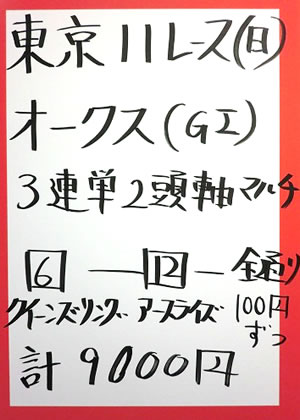 東京11レース(日)
オークス(GI)
3連単2頭軸マルチ
6 — 12 — 全通り
クイーンズリング アースライズ 100円
ずつ
計9000円